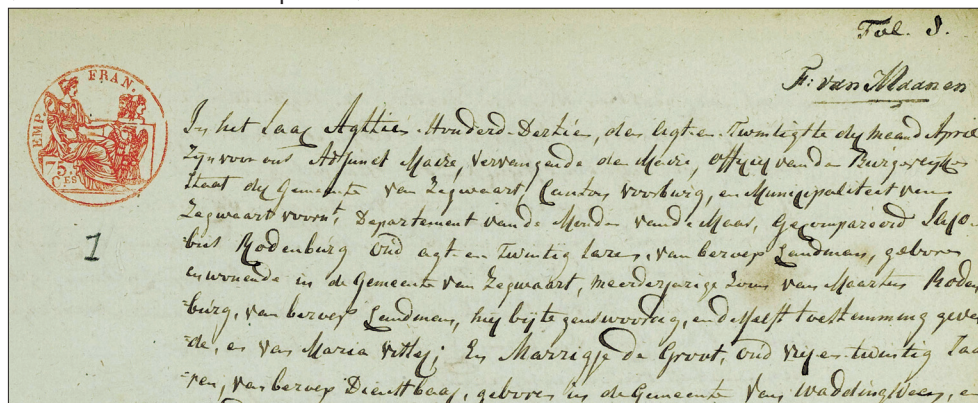 Fol. 8.
F: van Maanen
EMP. FRAN.
75.
CES
1
In het Jaar Agttien Honderd Dertien, den Agt en Twintigste der maand April
Zijn voor ons Adjunct Maire, vervangende de Maire, officier van den Burgerlijke
Staat der Gemeente van Zegwaart, Canton Voorburg, en Municipaliteit van
Zegwaart voornt, Departement van de Monden van de Maas, Gecompareerd Jaco-
bus Rodenburg Oud agt en Twintig Jaren, van beroep Landman, geboren
en wonende in de Gemeente van Zegwaart, meerderjarige Zoon van Maarten Roden-
-burg, van beroep Landman, hier bij tegenswoordig, en deselfs toestemming geven
-de, en van Maria; En Marrigje de Groot, Oud vrij en twintig Jaa
-ren, van beroep Dienstbaar, geboren in de Gemeente van Waddingsveen, e